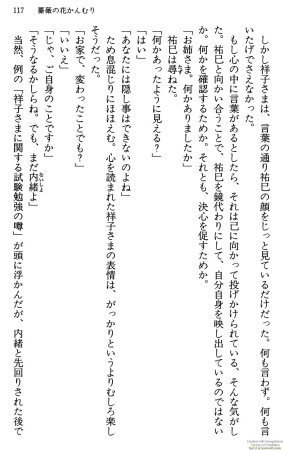 117　薔薇の花かんむり
　しかし祥子さまは、言葉の通り祐巳の顔をじっと見ているだけだった。何も言わず。何も言
いたげでさえなかった。
　もし心の中に言葉があるとしたら、それは己に向かって投げかけられている、そんな気がし
た。祐巳と向かい合うことで、祐巳を鏡代わりにして、自分自身を映し出しているのではない
か。何かを確認するためか。それとも、決心を促すためか。
「お姉さま。何かありましたか」
　祐巳は尋ねた。
「何かあったように見える？」
「はい」
「あなたには隠し事はできないのよね」
　ため息混じりにほほえむ。心を読まれた祥子さまの表情は、がっかりというよりむしろ楽し
そうだった。
「お家で、変わったことでも？」
「いいえ」
「じゃ、ご自身のことですか」
「そうなるかしらね。でも、まだ内緒よ」
　当然、例の「祥子さまに関する試験勉強の噂」が頭に浮かんだが、内緒と先回りされた後で